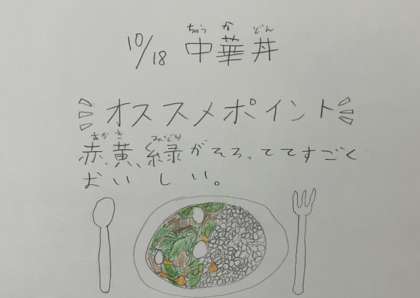 ちゅう か どん
10/18 中華丼
オススメポイント
あか き みどり
赤、黄、緑がそろっててすごく
おいしい。